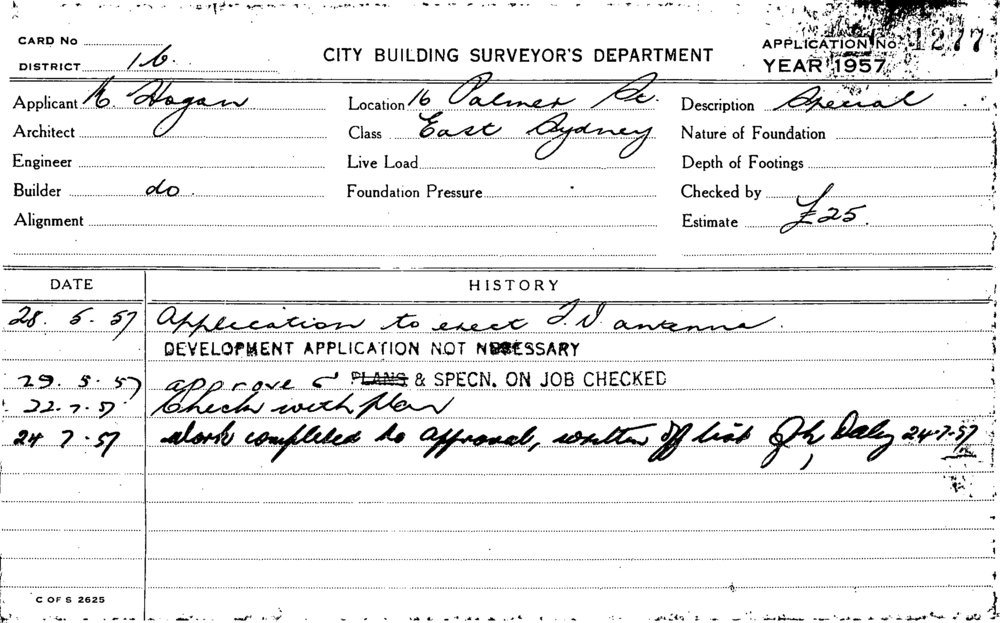 CARD No
DISTRICT 16.
CITY BUILDING SURVEYOR'S DEPARTMENT
APPLICATION No 1277
YEAR 1957
Applicant K. Hogan Location 16 Palmer St. Description Special
Architect Class East Sydney Nature of Foundation
Engineer Live Load Depth of Footings
Builder do Foundation Pressure Checked by
Alignment Estimate £25.
DATE HISTORY
28. 5. 57 Application to erect T.V antenna.
DEVELOPMENT APPLICATION NOT NECESSARY
29. 5. 57 approve PLANS & SPECN. ON JOB CHECKED
22. 7. 57 Check with plan
24 7. 57 Work completed to approval, written off list Daley 24.7.57
C OF S 2625